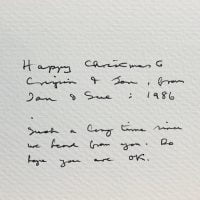 Happy Christmas to
Crispin & Jan, from
Jan & Sue : 1986
.
Such a long time since
we heard from you. Do
hope you are OK.